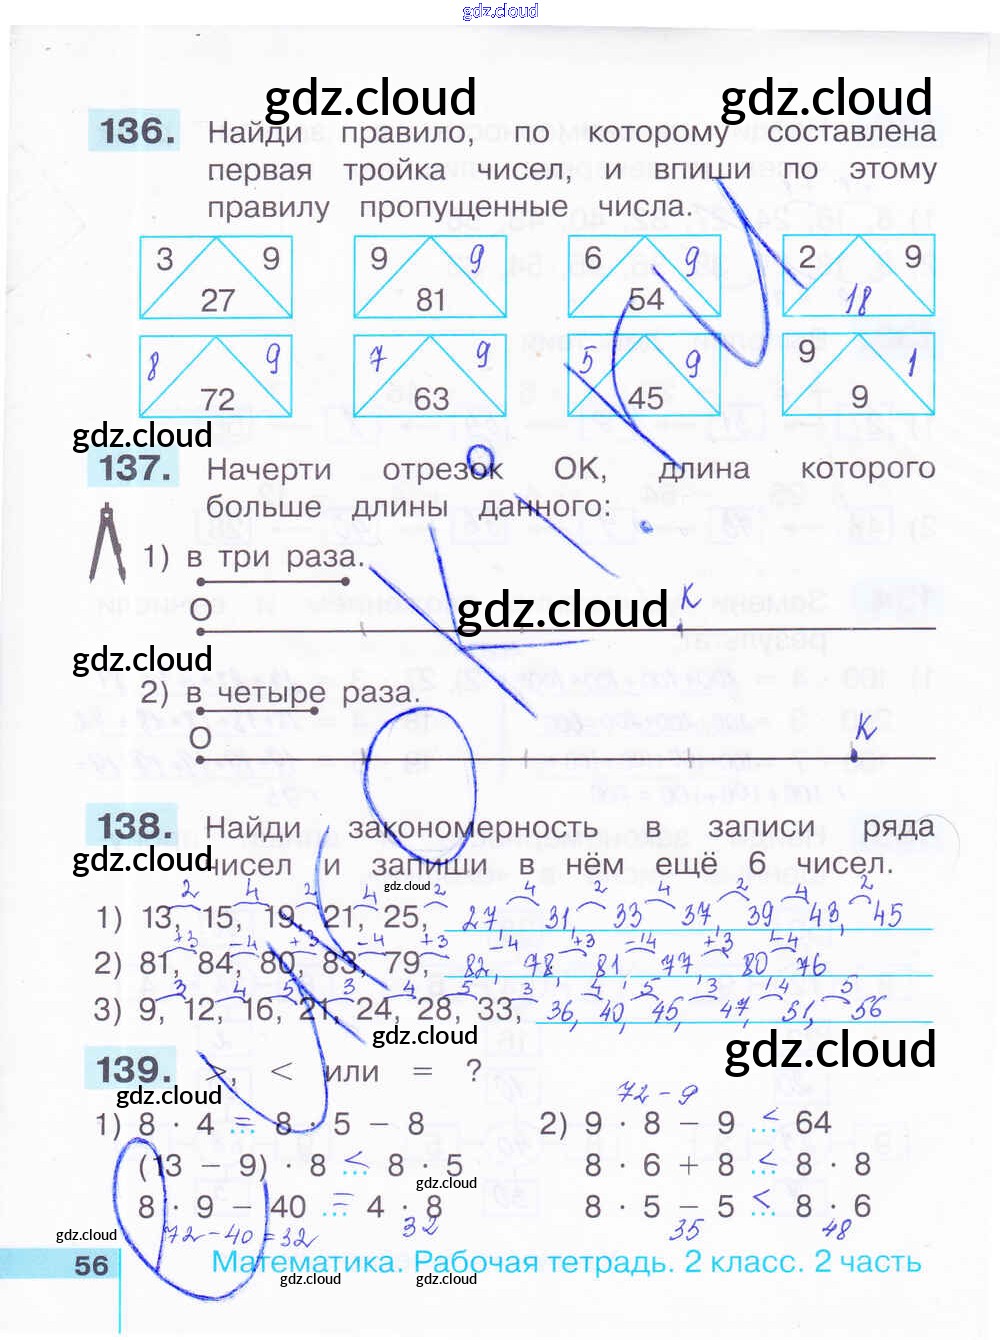 gdz.cloud
gdz.cloud gdz.cloud
136. Найди правило, по которому составлена
первая тройка чисел, и впиши по этому
правилу пропущенные числа.
3 9 27
9 9 81
6 9 54
2 9 18
8 9 72
7 9 63
5 9 45
9 1 9
gdz.cloud
137. Начерти отрезок ОК, длина которого
больше длины данного:
1) в три раза.
О К
gdz.cloud
gdz.cloud
2) в четыре раза.
О К
138. Найди закономерность в записи ряда
gdz.cloud
чисел и запиши в нём ещё 6 чисел.
gdz.cloud
2 4 2 4 2 4 2 4 2 4 2
1) 13, 15, 19, 21, 25, 27, 31, 33 37, 39 43, 45
+3 -4 +3 -4 +3 -4 +3 -4 +3 -4
2) 81, 84, 80, 83, 79, 82, 78 81 77, 80 76
3 4 5 3 4 5 3 4 5 3 4 5
3) 9, 12, 16, 21, 24, 28, 33, 36, 40, 45, 47, 51, 56
gdz.cloud
gdz.cloud
139. >, < или = ?
gdz.cloud
72 - 9
1) 8 · 4 = 8 · 5 − 8 2) 9 · 8 − 9 < 64
(13 − 9) · 8 < 8 · 5 8 · 6 + 8 < 8 · 8
gdz.cloud
8 · 9 − 40 = 4 · 8 8 · 5 − 5 < 8 · 6
72 - 40 = 32 32 35 48
gdz.cloud gdz.cloud
56 Математика. Рабочая тетрадь. 2 класс. 2 часть
gdz.cloud gdz.cloud gdz.cloud